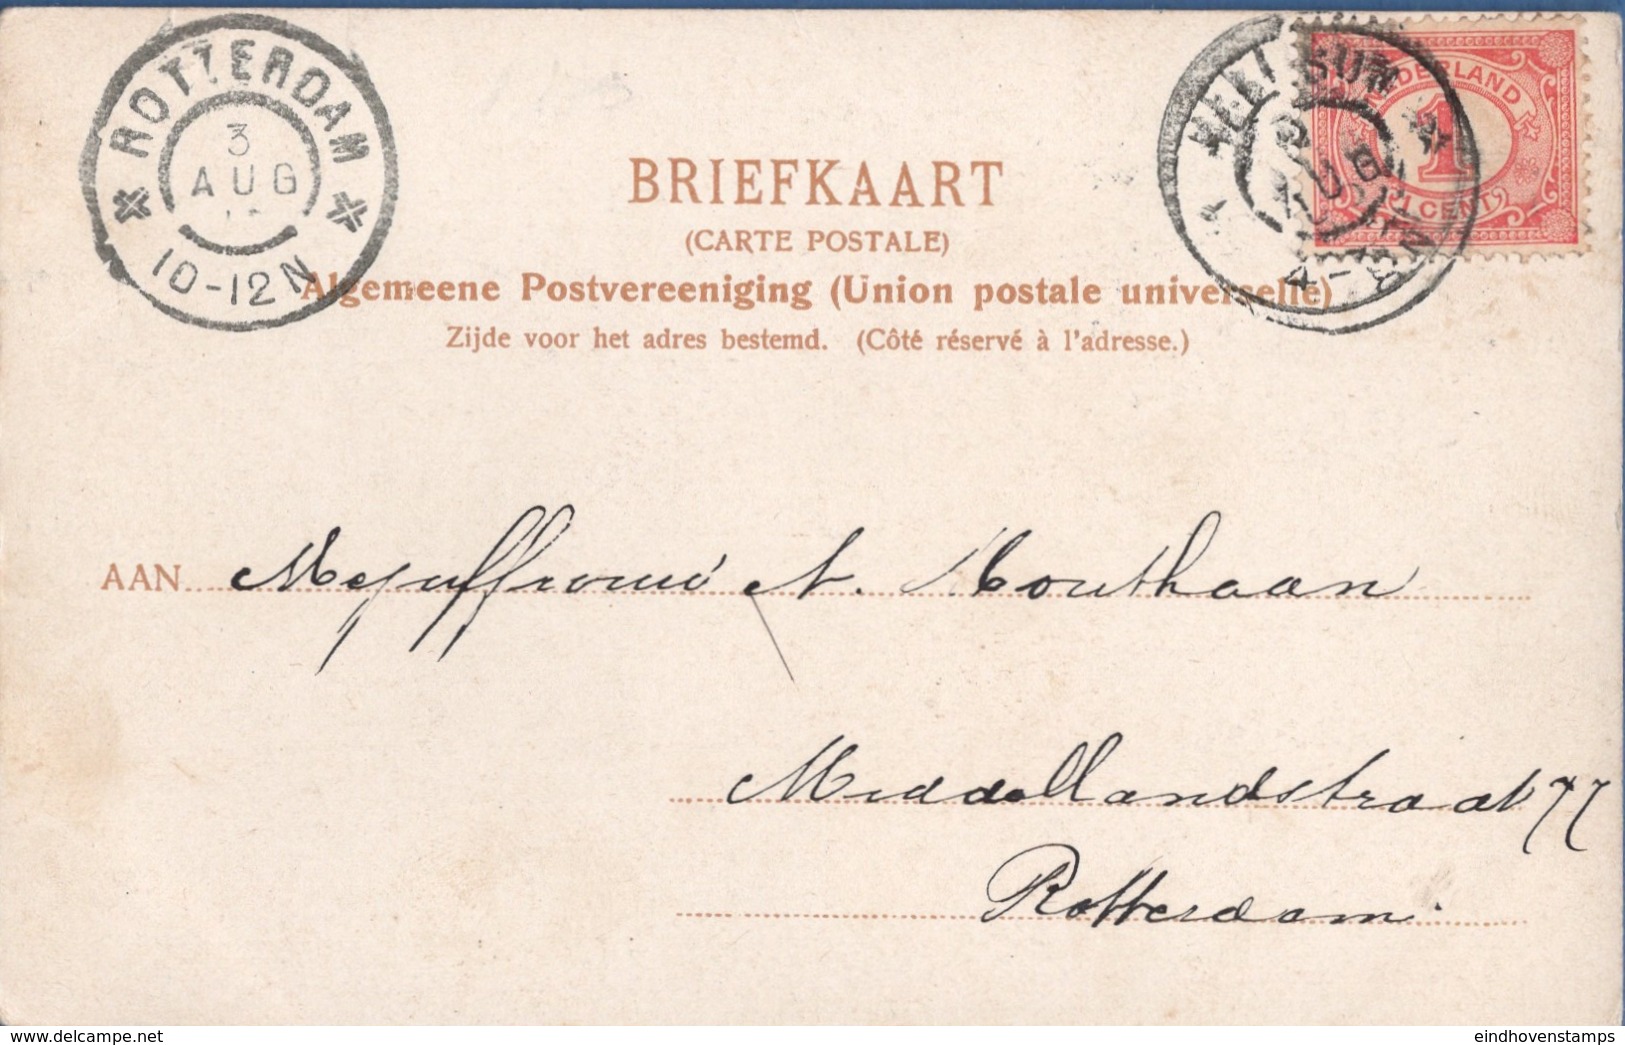 ROTTERDAM
3
AUG
10-12N
HELLEVOETSUN
AUG
4-8N
NEDERLAND
1
1 CENT
BRIEFKAART
(CARTE POSTALE)
Algemeene Postvereeniging (Union postale universelle)
Zijde voor het adres bestemd. (Côté réservé à l'adresse.)
AAN Mejuffrouw A. Mouthaan
Middellandstraat 77
Rotterdam.
eindhovenstamps